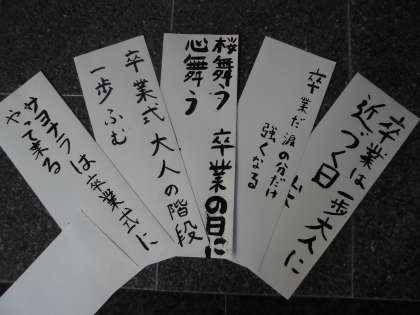 卒業は一歩大人に
近づく日
卒業だ涙の分だけ
強くなる
桜舞う 卒業の日に
心舞う
卒業式 大人の階段
一歩ふむ
サヨナラは卒業式に
やって来る